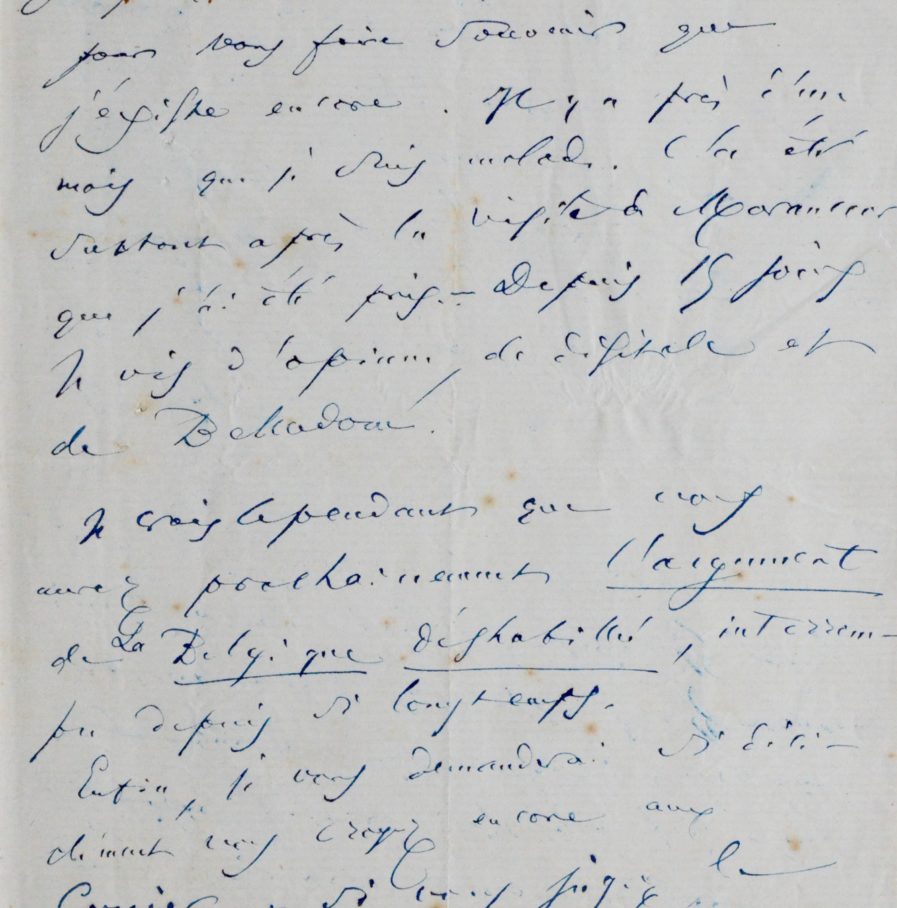 pour vous faire souvenir que
j'existe encore. Il y a près d'un
mois que je suis malade. Ç'a été
surtout après la visite à
que j'ai été pris. – Depuis 15 jours
Je vis d'opium, de digitale et
de Belladone.
Je crois cependant que vous
aurez prochainement l'argument
de La Belgique déshabillée, interrom-
pu depuis si longtemps.
Enfin, je vous demanderai si déci-
dément vous croyez encore aux
si vous jugez le